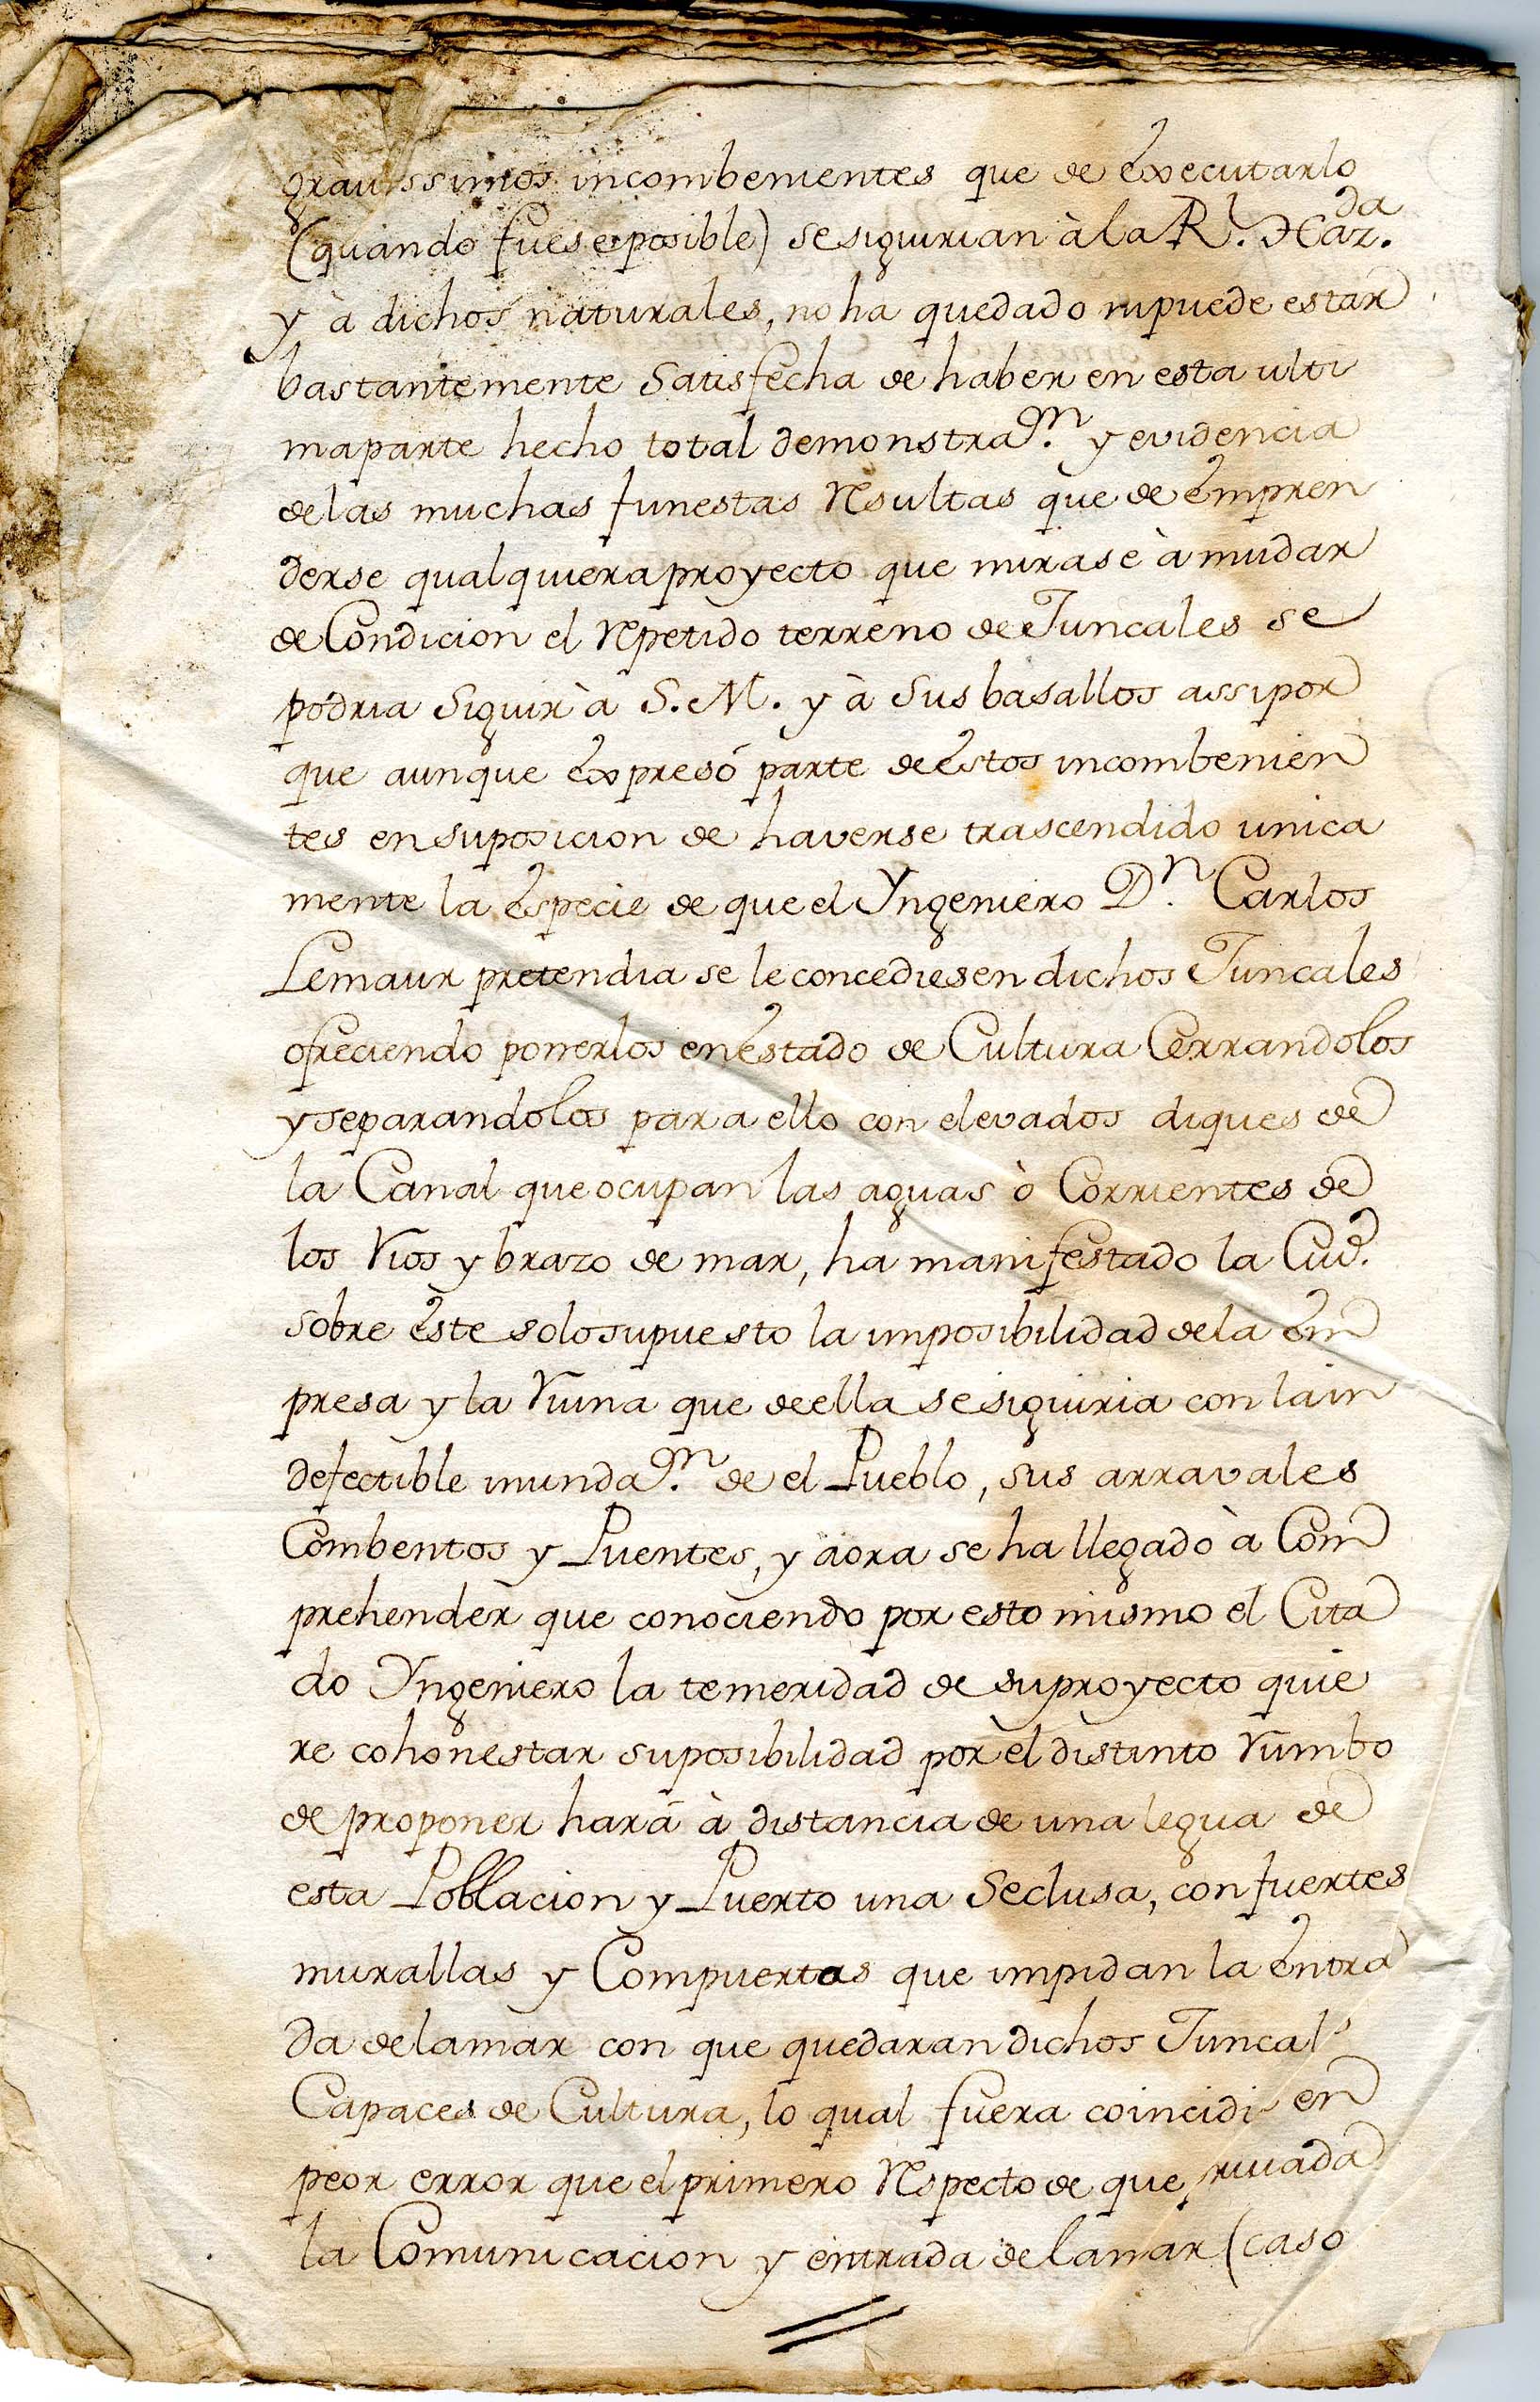 grauissimos incombenientes que de executarlo
(quando fuese posible) se siguirian à la Rl. Haz.da
y à dichos naturales, no ha quedado ni puede estar
bastantemente satisfecha de haber en esta ulti
ma parte hecho total demonstra.on y evidencia
de las muchas funestas resultas que de empren
derse qualquiera proyecto que mirase à mudar
de Condicion el repetido terreno de Juncales se
podria siguir à S. M. y à sus basallos assi por
que aunque expresó parte de estos incombenien
tes en suposicion de haverse trascendido unica
mente la especie de que el Yngeniero D.n Carlos
Lemaur pretendia se le concediesen dichos Juncales
ofreciendo ponerlos en estado de Cultura Cerrandolos
y separandolos para ello con elevados diques de
la Canal que ocupan las aguas ò Corrientes de
los rios y brazo de mar, ha manifestado la Ciud.
sobre este solo supuesto la imposibilidad de la em
presa y la ruina que de ella se siguiria con la in
defectible inunda.on de el Pueblo, sus arravales
Combentos y Puentes, y aora se ha llegado à Com
prehender que conociendo por esto mismo el Cita
do Yngeniero la temeridad de su proyecto quie
re cohonestar su posibilidad por el distinto rumbo
de proponer hará à distancia de una legua de
esta Poblacion y Puerto una Seclusa, con fuertes
murallas y Compuertas que impidan la entra
da de la mar con que quedaran dichos Juncal.s
Capaces de Cultura, lo qual fuera coincidir en
peor error que el primero respecto de que privada
la Comunicacion y entrada de la mar (caso